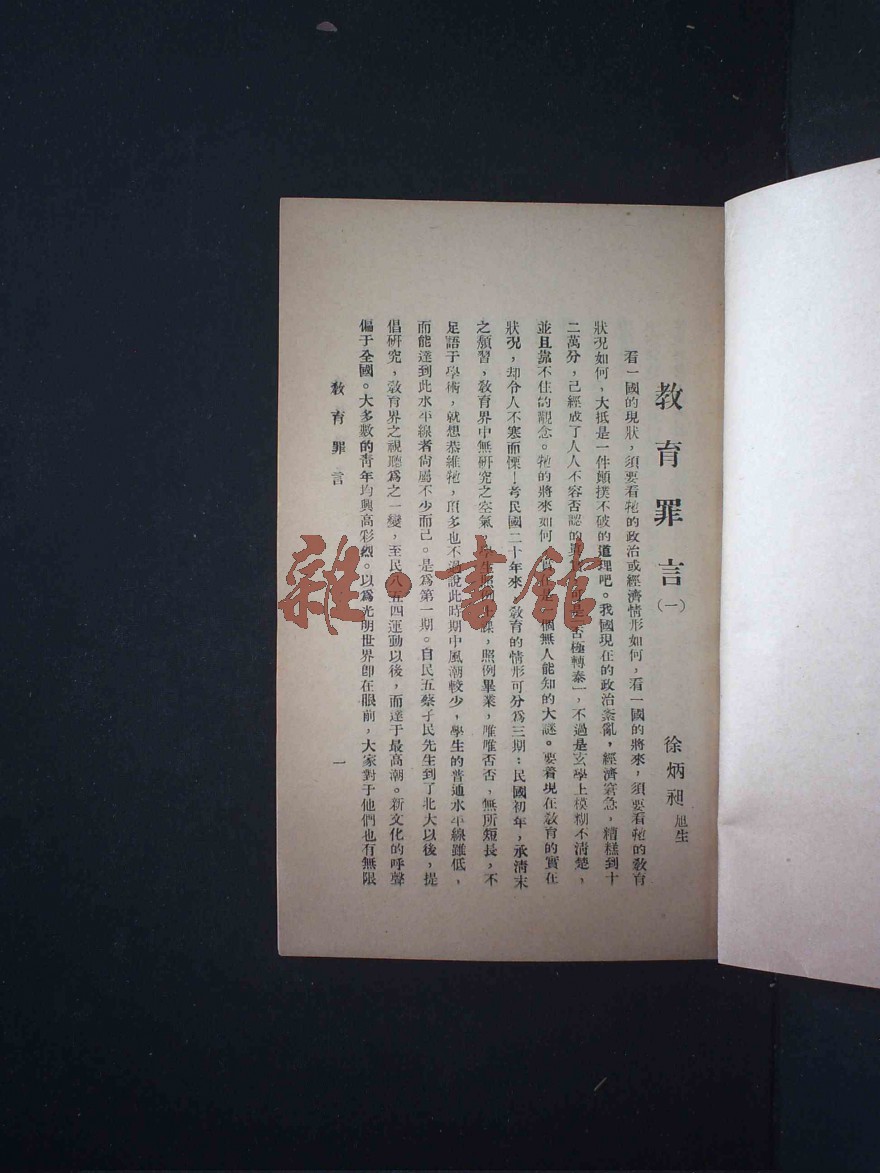 教育罪言(一)
徐炳昶 旭生
看一國的現狀,須要看牠的政治或經濟情形如何,看一國的將來,須要看牠的敎育
狀況如何,大抵是一件顚撲不破的道理吧。我國現在的政治紊亂,經濟窘急,糟糕到十
二萬分,已經成了人人不容否認的 否極轉泰一,不過是玄學上模糊不淸楚,
並且靠不住的觀念。牠的將來如何 個無人能知的大謎。要着現在敎育的實在
狀況,却令人不寒而慄!考民國二十年來,敎育的情形可分爲三期:民國初年,承淸末
之頹習,敎育界中無硏究之空氣,學生照例上課,照例畢業,唯唯否否,無所短長,不
足語于學術,就想恭維牠,頂多也不過說此時期中風潮較少,學生的普通水平線雖低,
而能達到此水平線者尙屬不少而已。是爲第一期。自民五蔡孑民先生到了北大以後,提
倡硏究,敎育界之視聽爲之一變,至民八五四運動以後,而達于最高潮。新文化的呼聲
偏于全國。大多數的靑年均興高彩烈。以爲光明世界卽在眼前,大家對于他們也有無限
敎育罪言
一
雜·書館